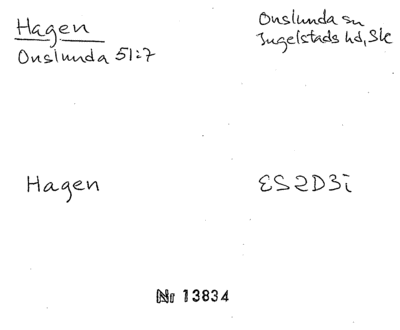 Hagen
Onslunda 51:7
Onslunda sn
Ingelstads hd, Sk
Hagen
ES2D3i
Nr 13834